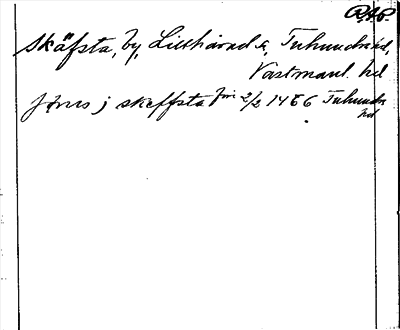 RAP.
Skäfsta, by, Lillhärad s., Tuhundra hd,
Västmanl. hd
Jönes j skeffsta fm 2/2 1466 Tuhundra
hd